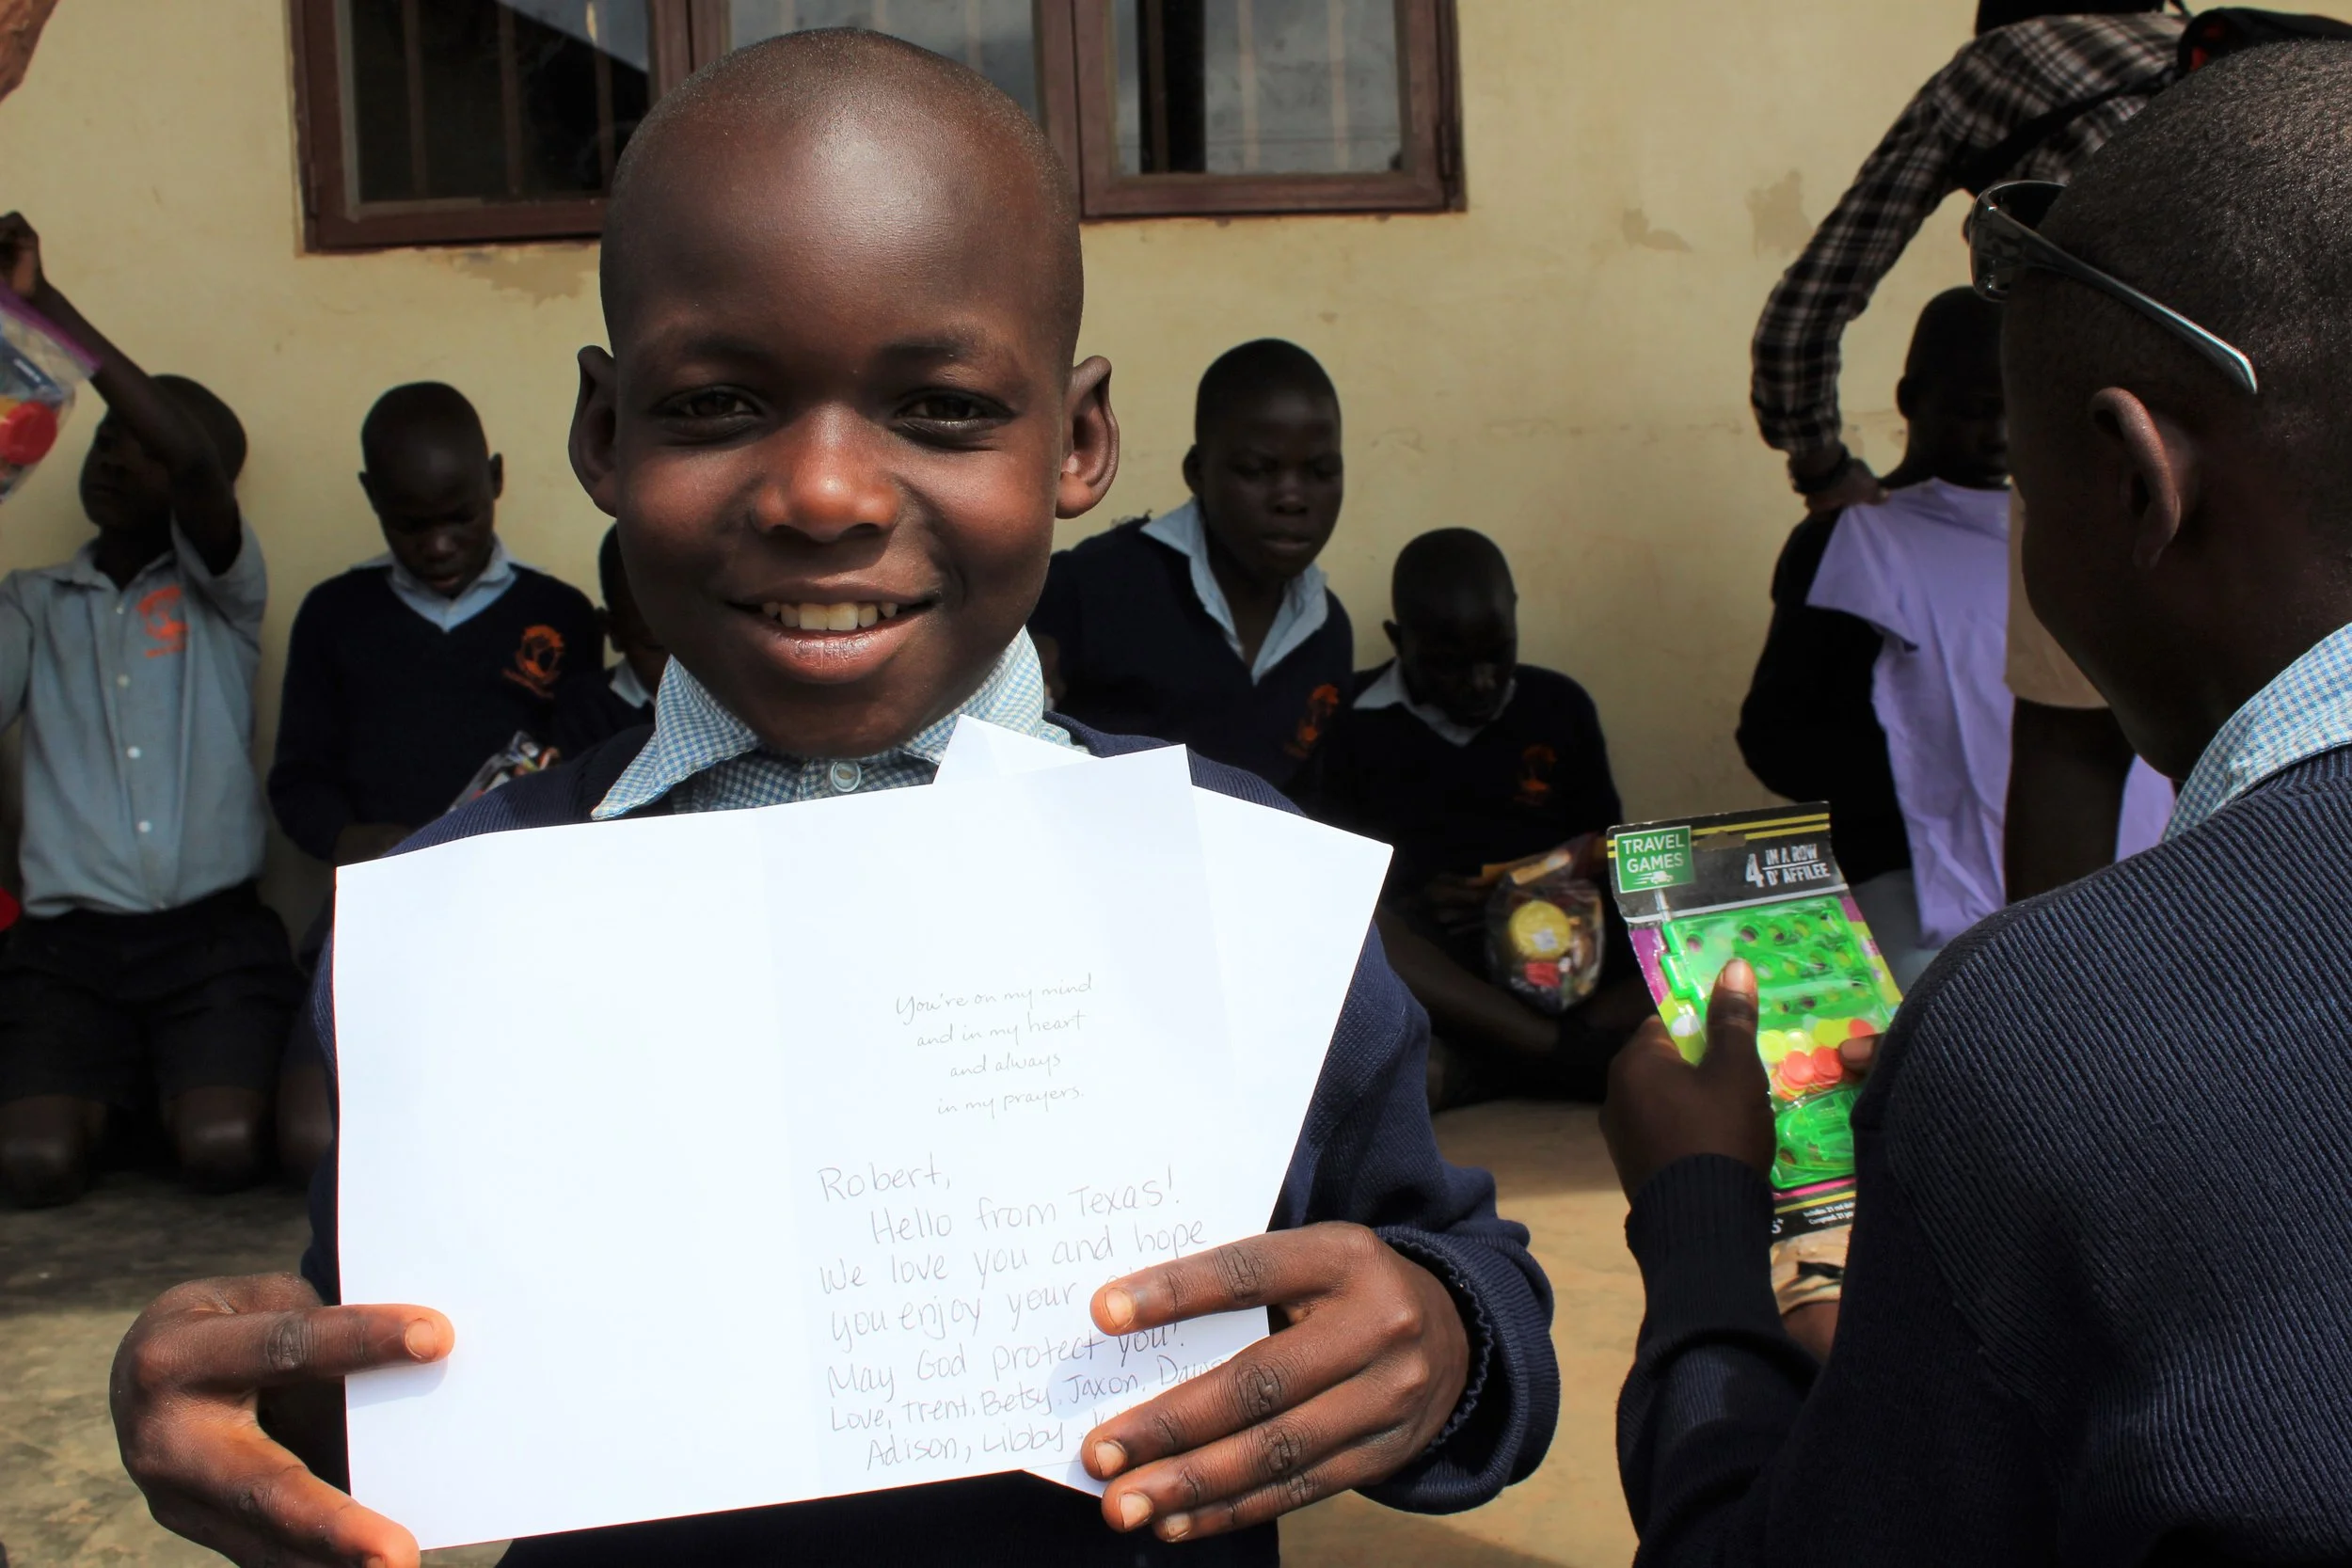 You're on my mind
and in my heart
and always
in my prayers.
Robert,
Hello from Texas!
We love you and hope
you enjoy your
May God protect you!
Love, Trent, Betsy, Jaxon,
Adison, Libby,
TRAVEL
GAMES
4 IN A ROW
D'AFFILEE